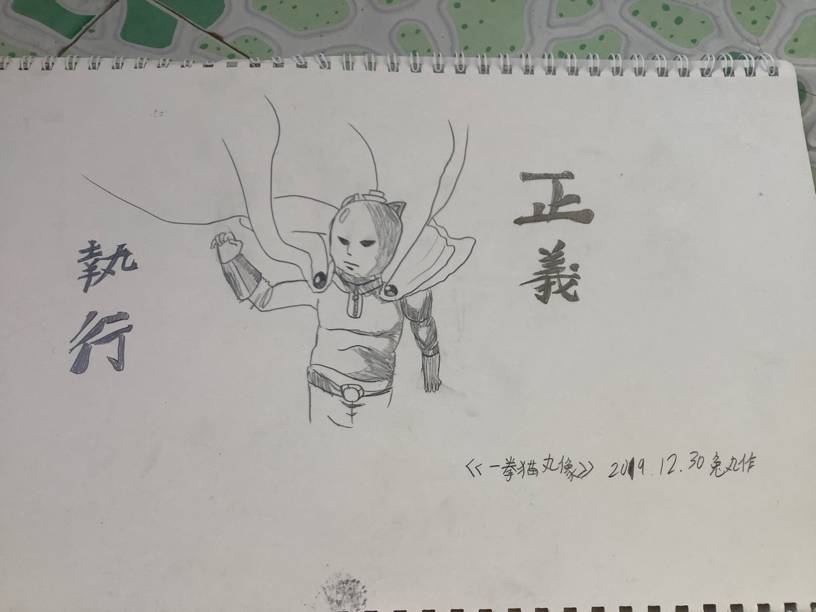 正義
執行
《一拳猫丸像》 2019.12.30 兔丸作